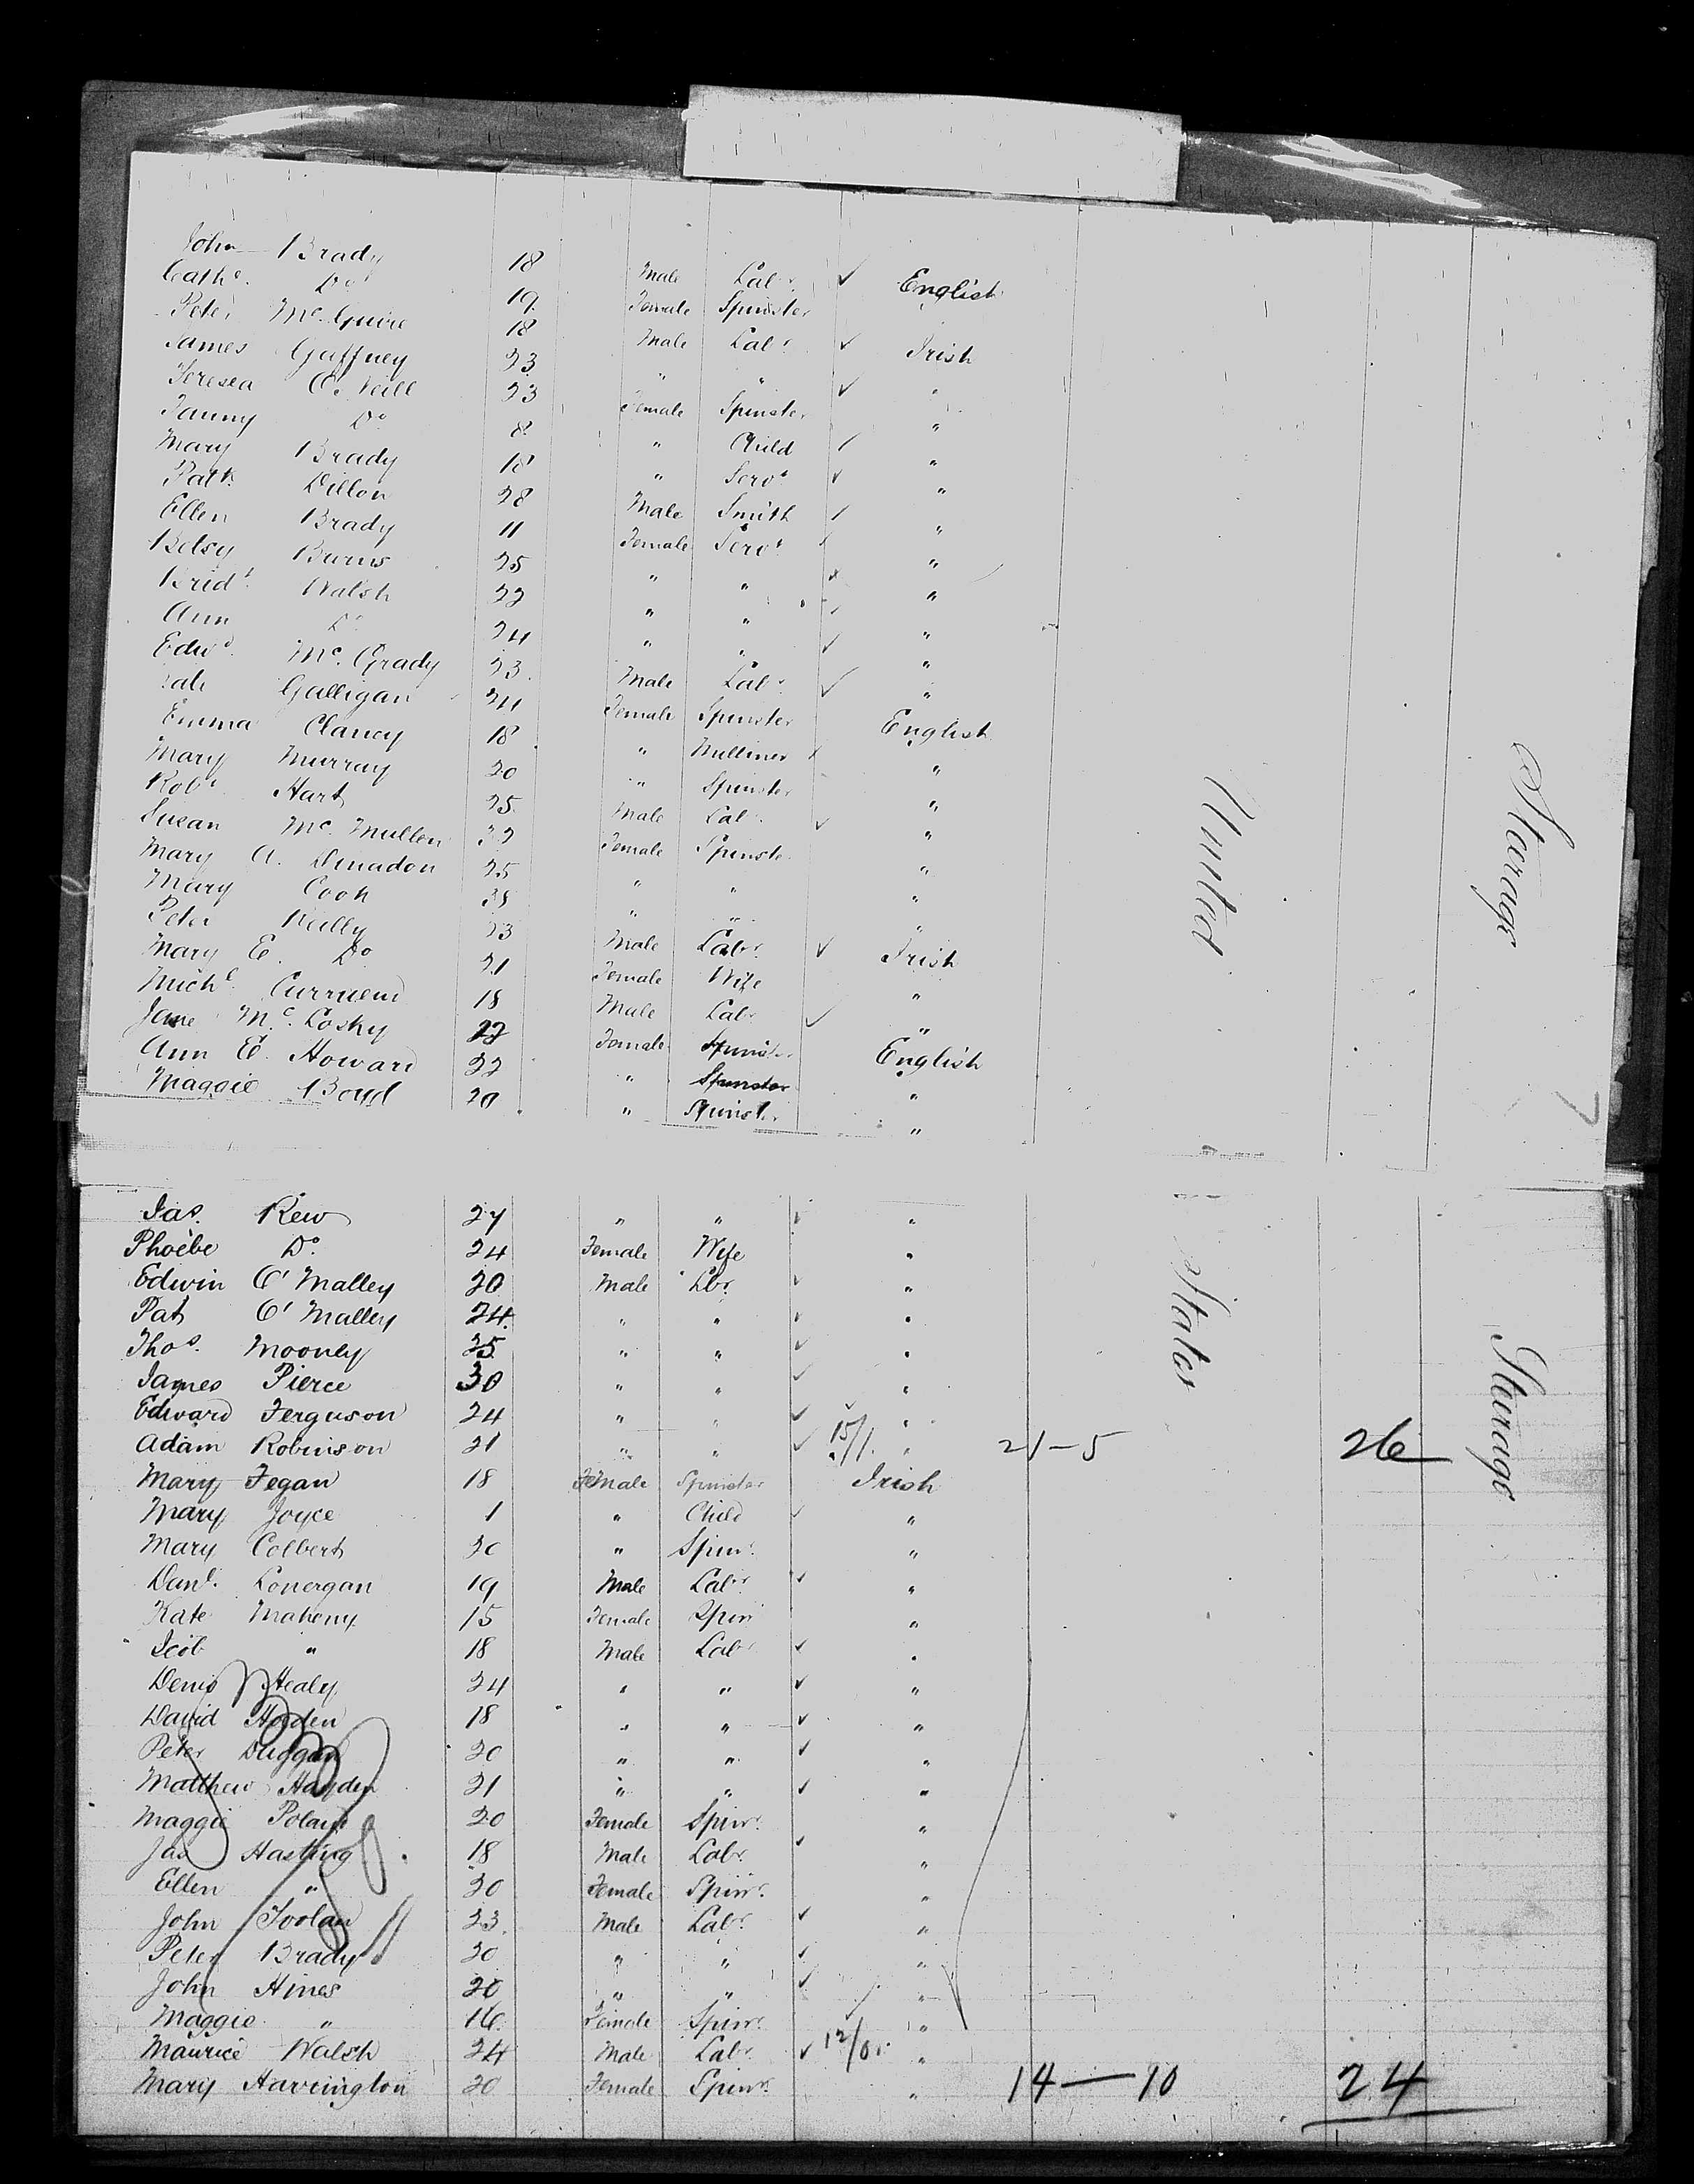 John Brady 18 Male Labr ✓ English
Cathe. Do 19 Female Spinster
Peter McGuire 18 Male Labr ✓ Irish
James Gaffney 23 " " ✓ "
Teresea O'Neill 23 Female Spinster "
Fanny Do 8 " Child "
Mary Brady 18 " Servt ✓ "
Patk. Dillon 28 Male Smith "
Ellen Brady 11 Female Servt "
Betsy Burns 25 " " "
Bridt. Walsh 22 " " "
Ann Do 24 " " ✓ "
Edwd. Mc. Grady 23 Male Labr ✓ "
Galligan 24 Female Spinster English
Emma Clancy 18 " Milliner "
Mary Murray 20 " Spinster "
Robt Hart 25 Male Labr ✓ "
Susan Mc. Mullen 32 Female Spinster "
Mary A. 25 " " "
Mary Cook " " "
Peter Reilly 23 Male Labr. ✓ Irish
Mary E. Do 21 Female Wife "
Michl. 18 Male Labr ✓ "
Jane Mc. Cosky 22 Female Spinster English
Ann E. Howard 22 " Spinster "
Maggie Boyd 20 " Spinster "
United States
Steerage
Jas. Rew 27 " " ✓ "
Phoebe Do. 24 Female Wife "
Edwin O'Malley 20 Male Lbr. ✓ "
Pat O'Malley 24 " " ✓ "
Thos. Mooney 25 " " ✓ "
James Pierce 30 " " ✓ "
Edward Ferguson 24 " " ✓ "
Adam Robinson 21 " " ✓ 15/1. " 21-5 26
Mary Fegan 18 Female Spinster Irish
Mary Joyce 1 " Child ✓ "
Mary Colbert 30 " Spinr. "
Danl. Lonergan 19 Male Labr. ✓ "
Kate Mahony 15 Female Spin "
" 18 Male Labr ✓ "
Denis Healy 24 " " ✓ "
David Hayden 18 " " ✓ "
Peter Duggan 20 " " ✓ "
Matthew Hayden 21 " " ✓ "
Maggie Poland 20 Female Spinr. "
Jas Hasting 18 Male Labr. ✓ "
Ellen " 30 Female Spinr. "
John Toolan 23 Male Labr. ✓ "
Peter Brady 30 " " ✓ "
John Hines 20 " " ✓ "
Maggie " 16 Female Spinr. "
Maurice Walsh 24 Male Labr. ✓ 12/0. "
Mary Harrington 20 Female Spinr. " 14—10 24
Steerage